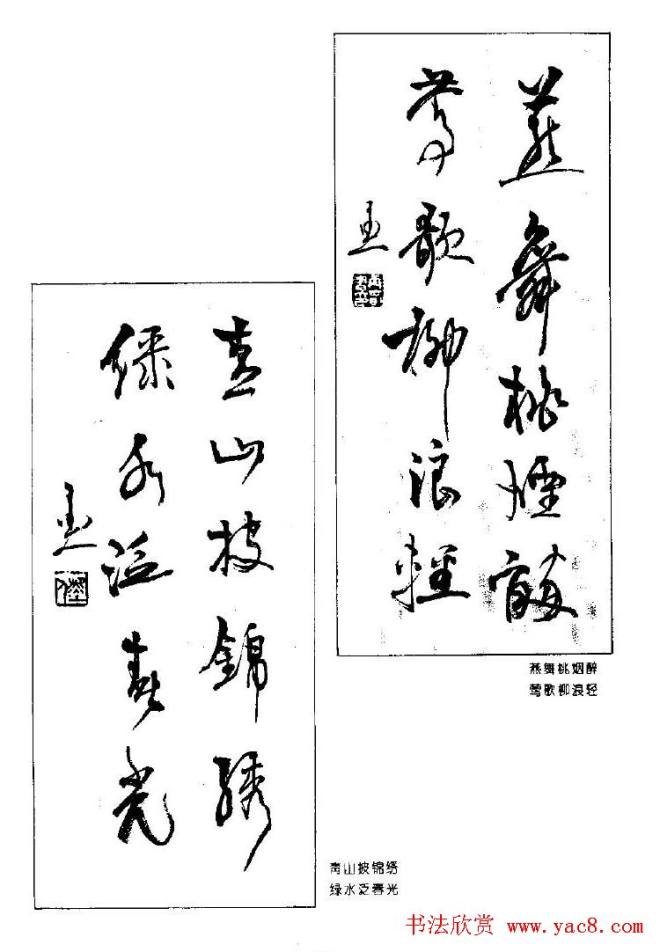 燕舞桃煙醉
鶯歌柳浪輕
燕舞桃烟醉
莺歌柳浪轻
青山披錦綉
緑水泛春光
青山披锦绣
绿水泛春光
书法欣赏 www.yac8.com